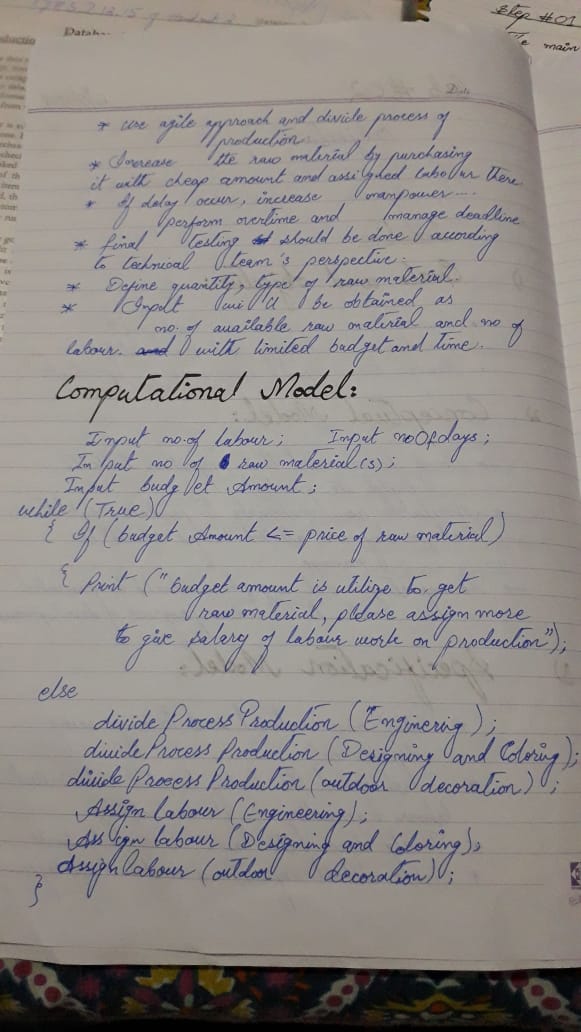 Step #01
The main
Date
* use agile approach and divide process of
production
* Increase the raw material by purchasing
it with cheap amount and assigned labour there
* If delay occur, increase manpower....
perform overtime and manage deadline
* final testing should be done according
to technical team's perspective.
* Define quantity, type of raw material.
* Input will be obtained as
no. of available raw material and no of
labour. and with limited budget and time.
Computational Model:
Input no.of labour; Input no Of days;
Input no of raw material(s);
Input budget Amount;
while (True)
{ If (budget Amount <= price of raw material)
{ Print ("budget amount is utilize to get
raw material, please assign more
to give salary of labour work on production");
else
divide Process Production ("Enginering);
divide Process Production (Designing and Coloring);
divide Process Production (outdoor decoration);
Assign labour (Engineering);
Assign labour (Designing and Coloring);
Assign labour (outdoor decoration);
}